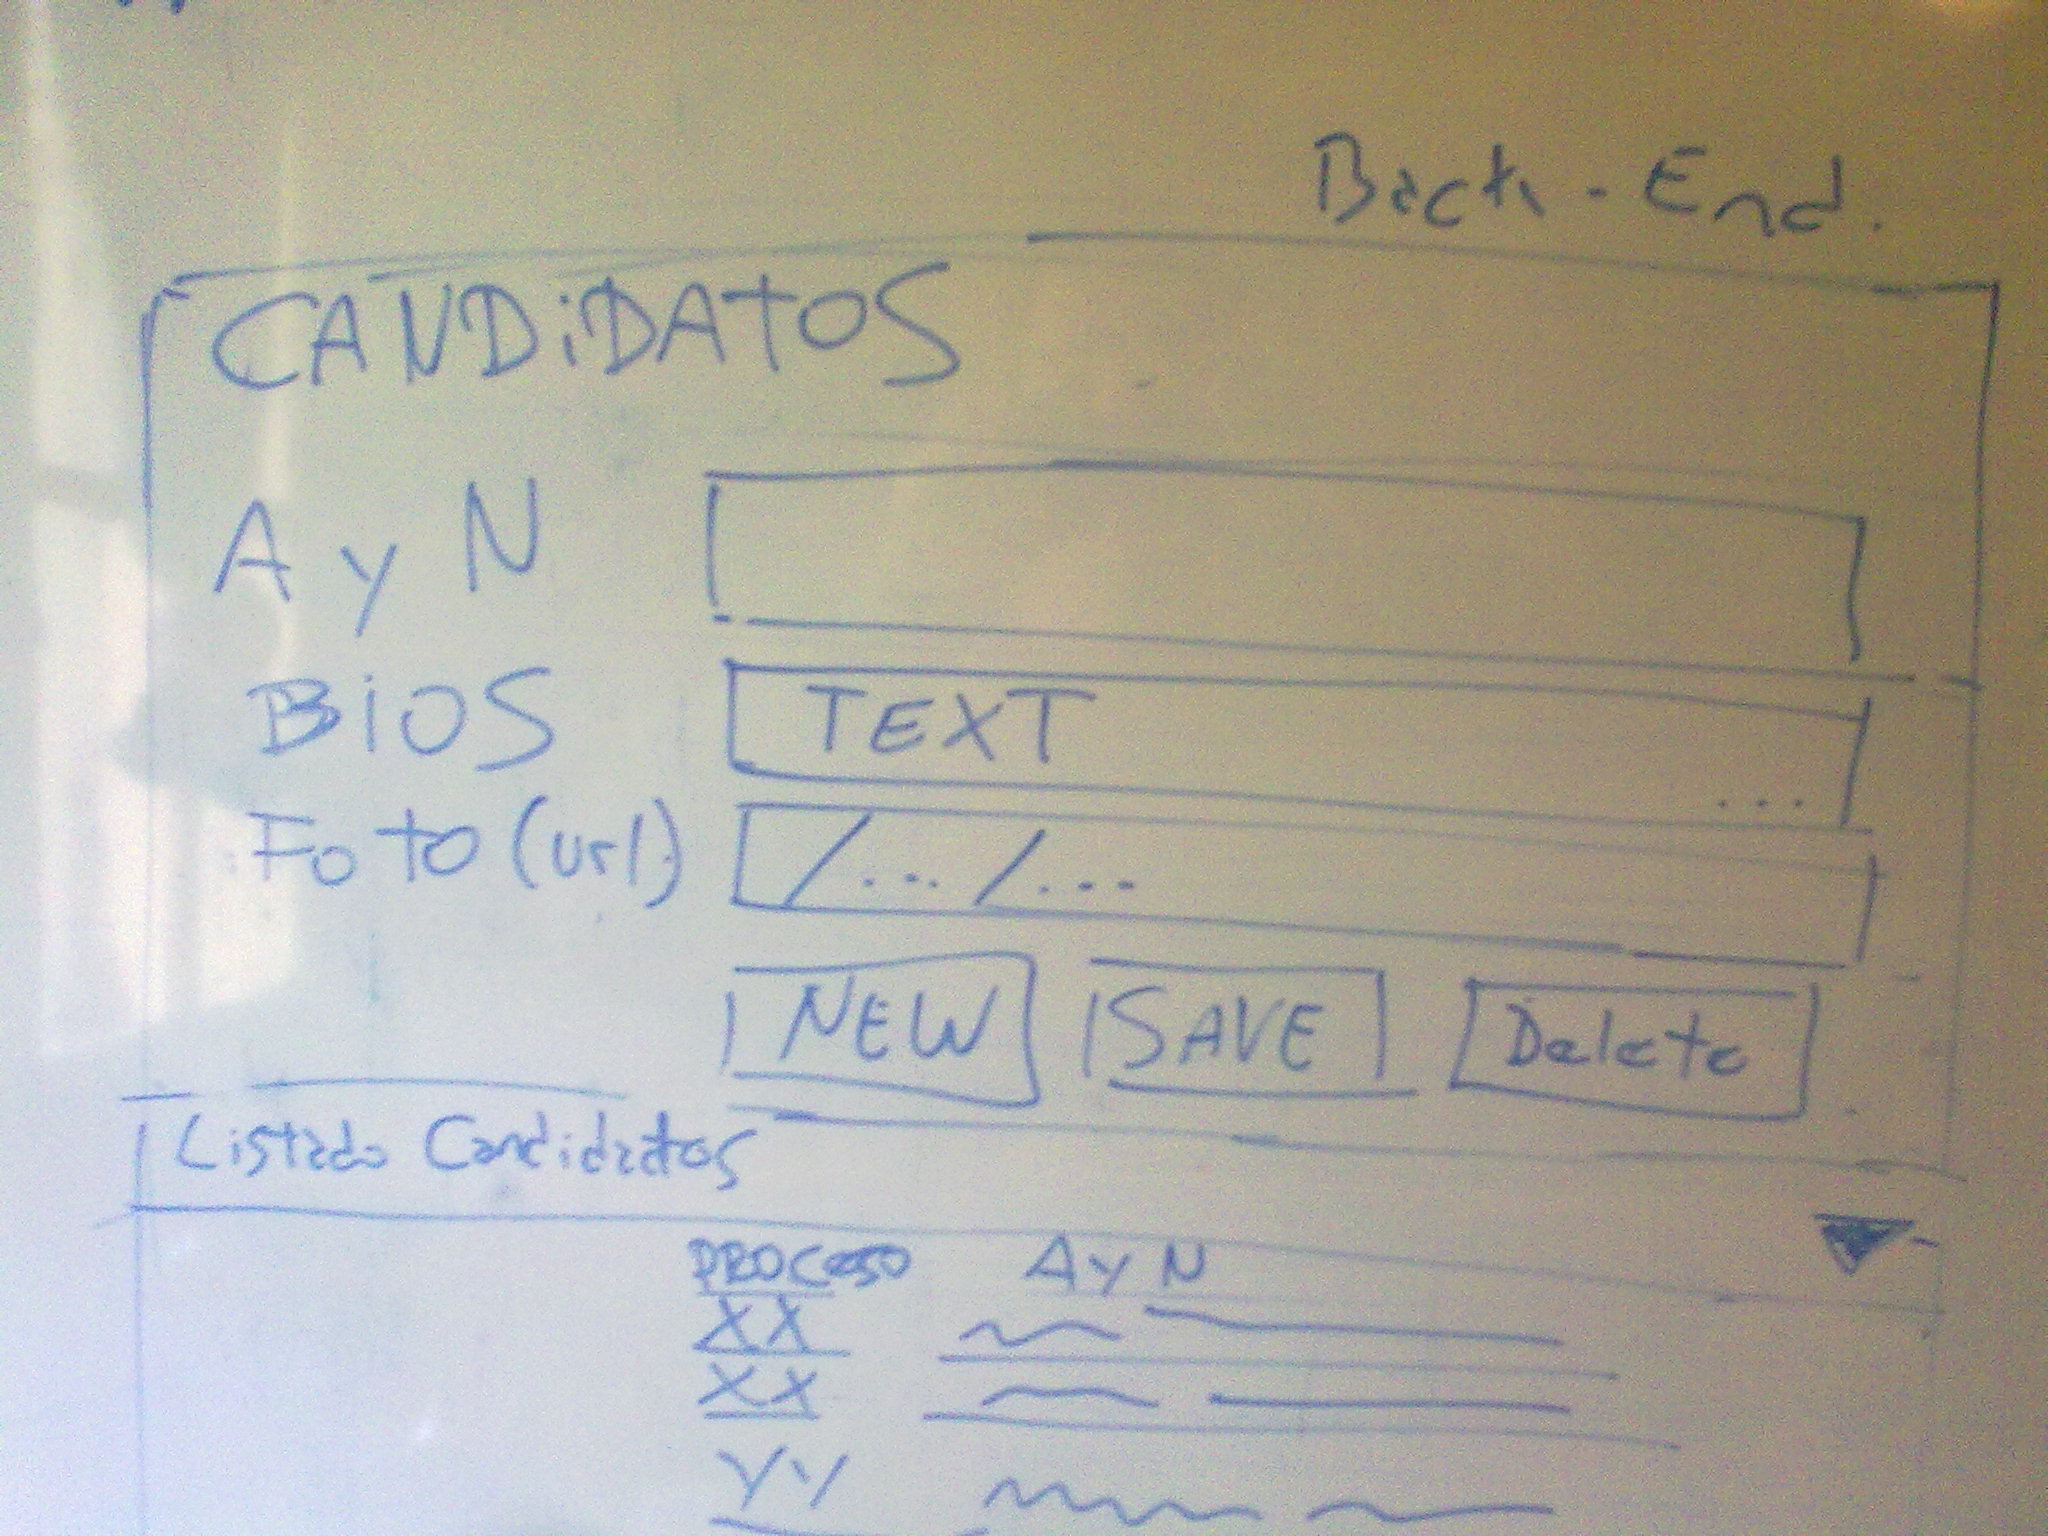 Back-End.
CANDiDATOS
A y N
BiOS TEXT ...
Foto (url) /... /...
NEW SAVE Delete
Listado Candidatos
PROCESO A y N
XX
XX
YY